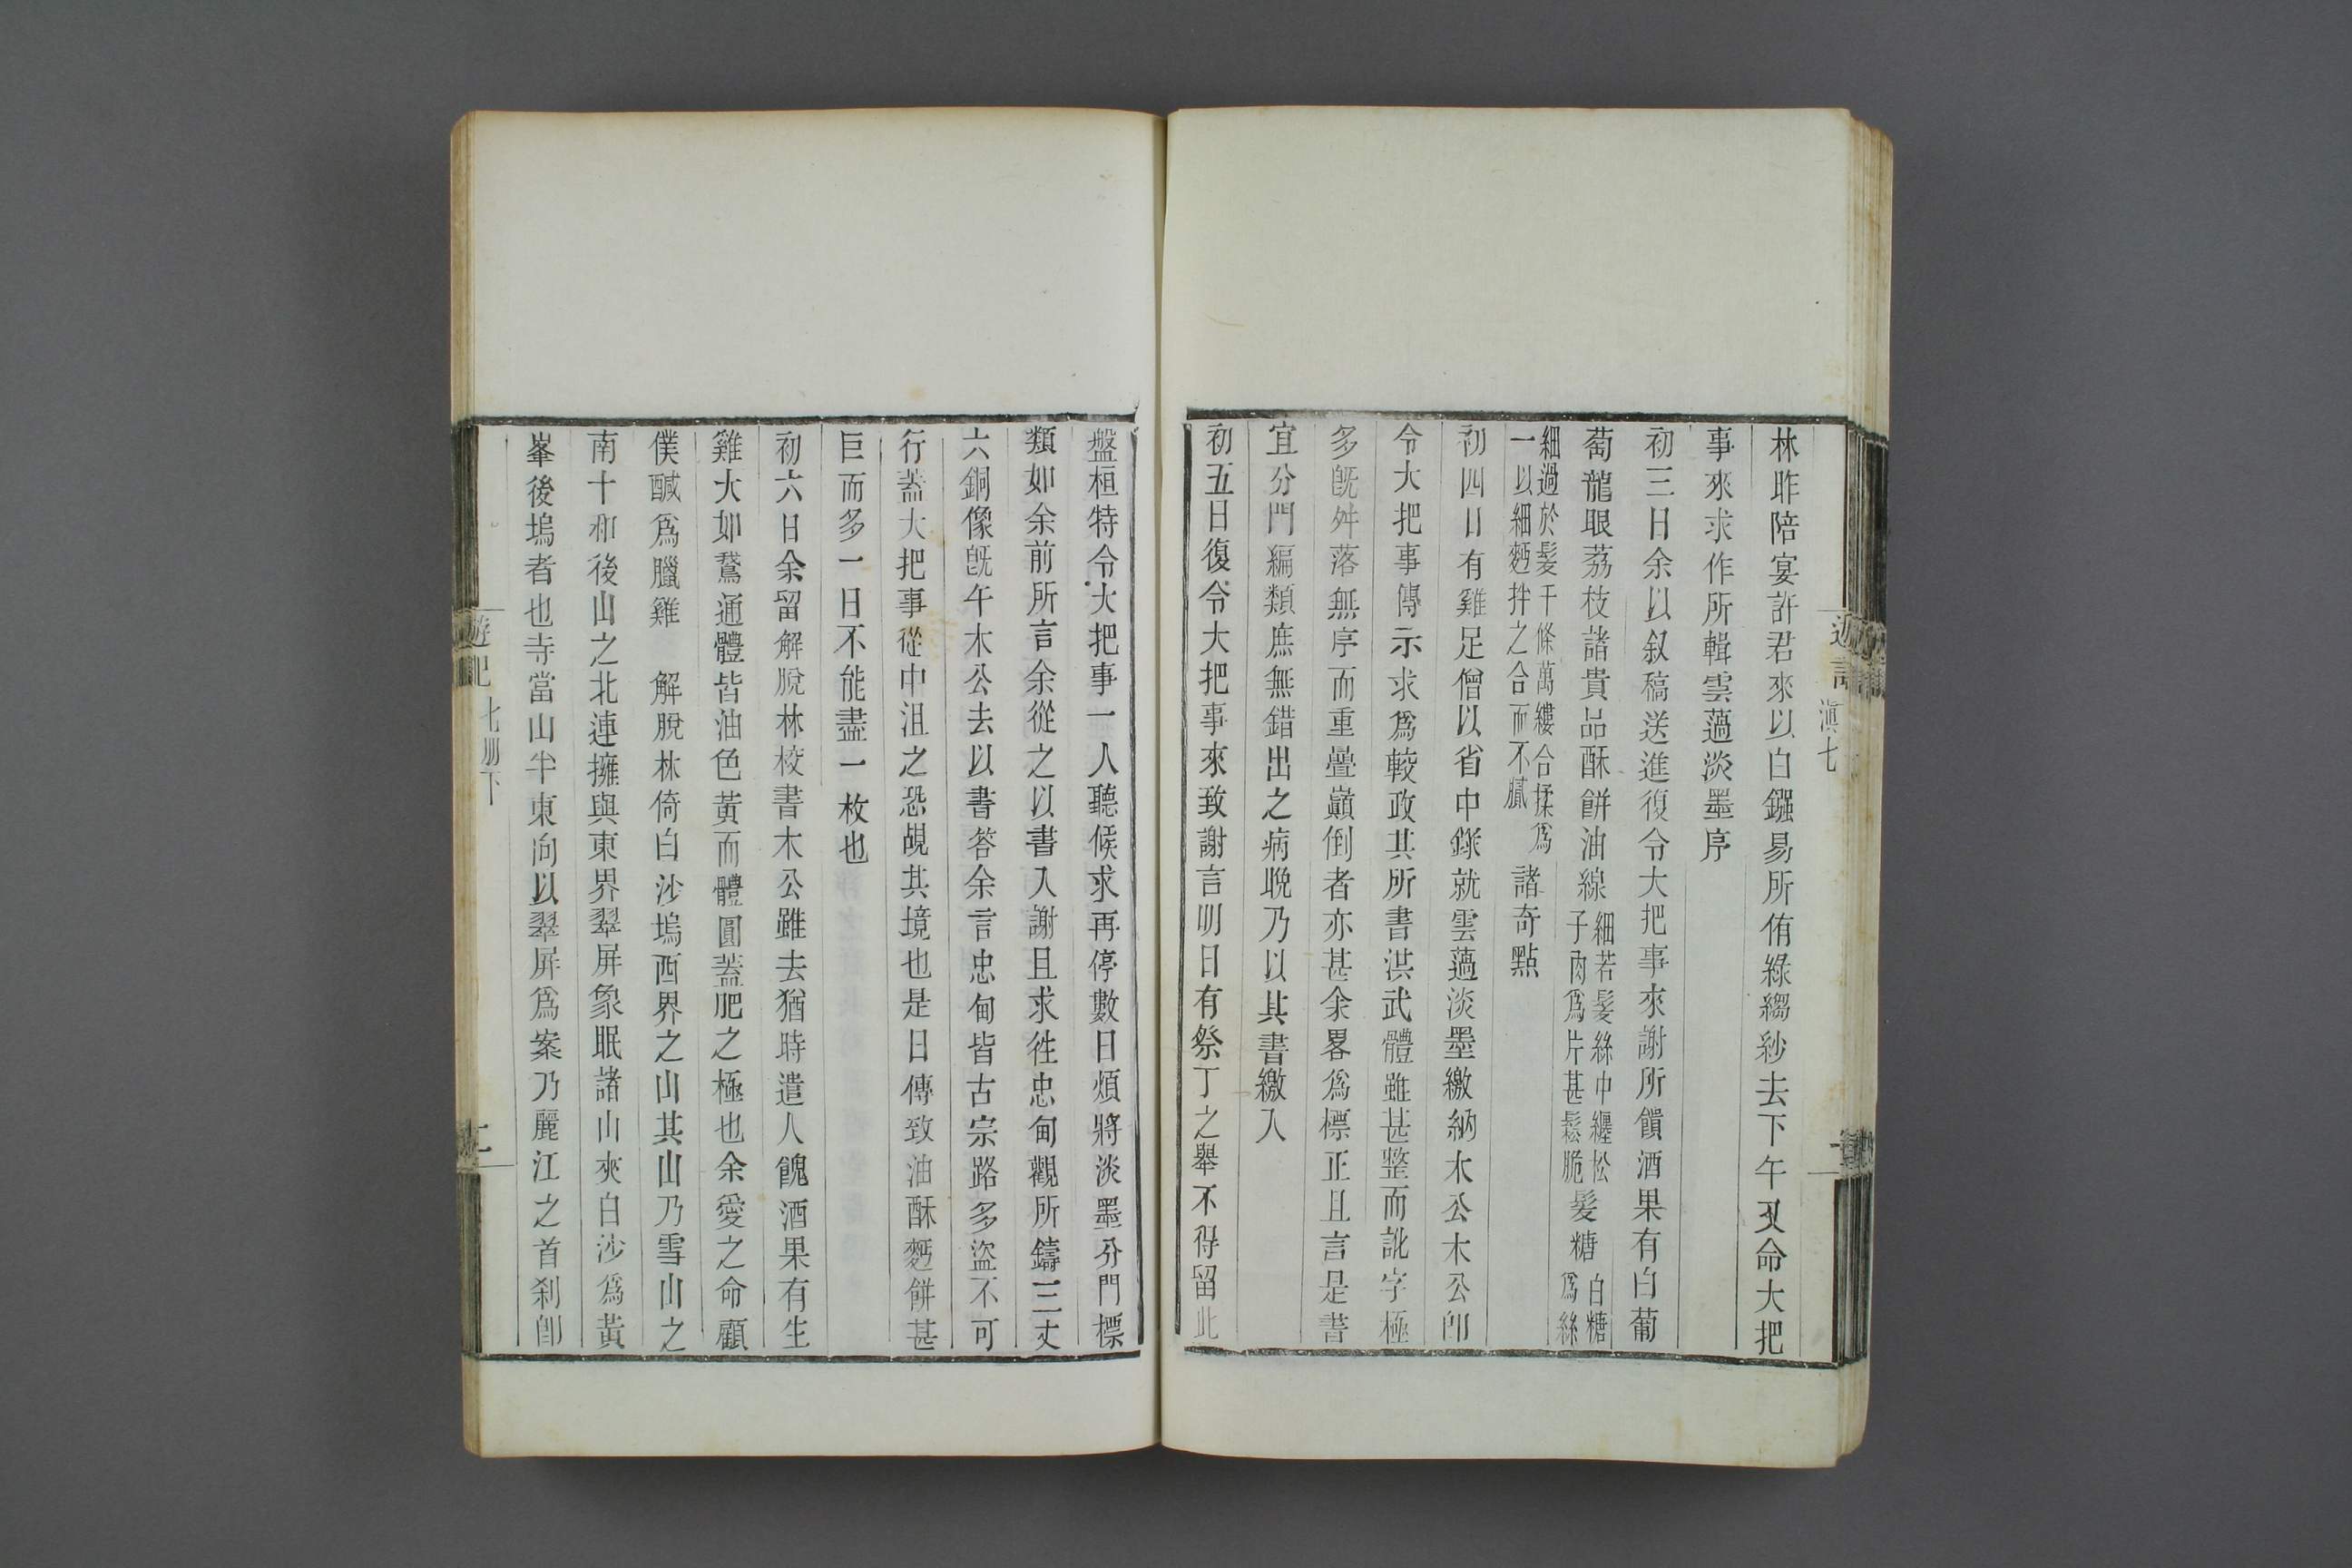 林昨陪宴許君來以白鏹易所侑綠縐紗去下午又命大把
事來求作所輯雲薖淡墨序
初三日余以叙稿送進復令大把事來謝所饋酒果有白葡
萄龍眼荔枝諸貴品酥餅油線細若髮絲中纏松子肉爲片甚鬆脆髮糖白糖爲絲
細過於髮千條萬縷合揉爲一以細麪拌之合而不膩諸奇點
初四日有雞足僧以省中錄就雲薖淡墨繳納木公木公卽
令大把事傳示求爲較政其所書洪武體雖甚整而訛字極
多旣舛落無序而重疊巔倒者亦甚余畧爲標正且言是書
宜分門編類庶無錯出之病晚乃以其書繳入
初五日復令大把事來致謝言明日有祭丁之舉不得留此
盤桓特令大把事一人聽候求再停數日煩將淡墨分門標
類如余前所言余從之以書入謝且求徃忠甸觀所鑄三丈
六銅像旣午木公去以書答余言忠甸皆古宗路多盜不可
行蓋大把事從中沮之恐覘其境也是日傳致油酥麪餅甚
巨而多一日不能盡一枚也
初六日余留解脫林校書木公雖去猶時遣人餽酒果有生
雞大如鵞通體皆油色黃而體圓蓋肥之極也余愛之命顧
僕醎爲臘雞　解脫林倚白沙塢西界之山其山乃雪山之
南十和後山之北連擁與東界翠屏象眠諸山夾白沙爲黃
峯後塢者也寺當山半東向以翠屏爲案乃麗江之首刹卽
遊記 七册下
滇七